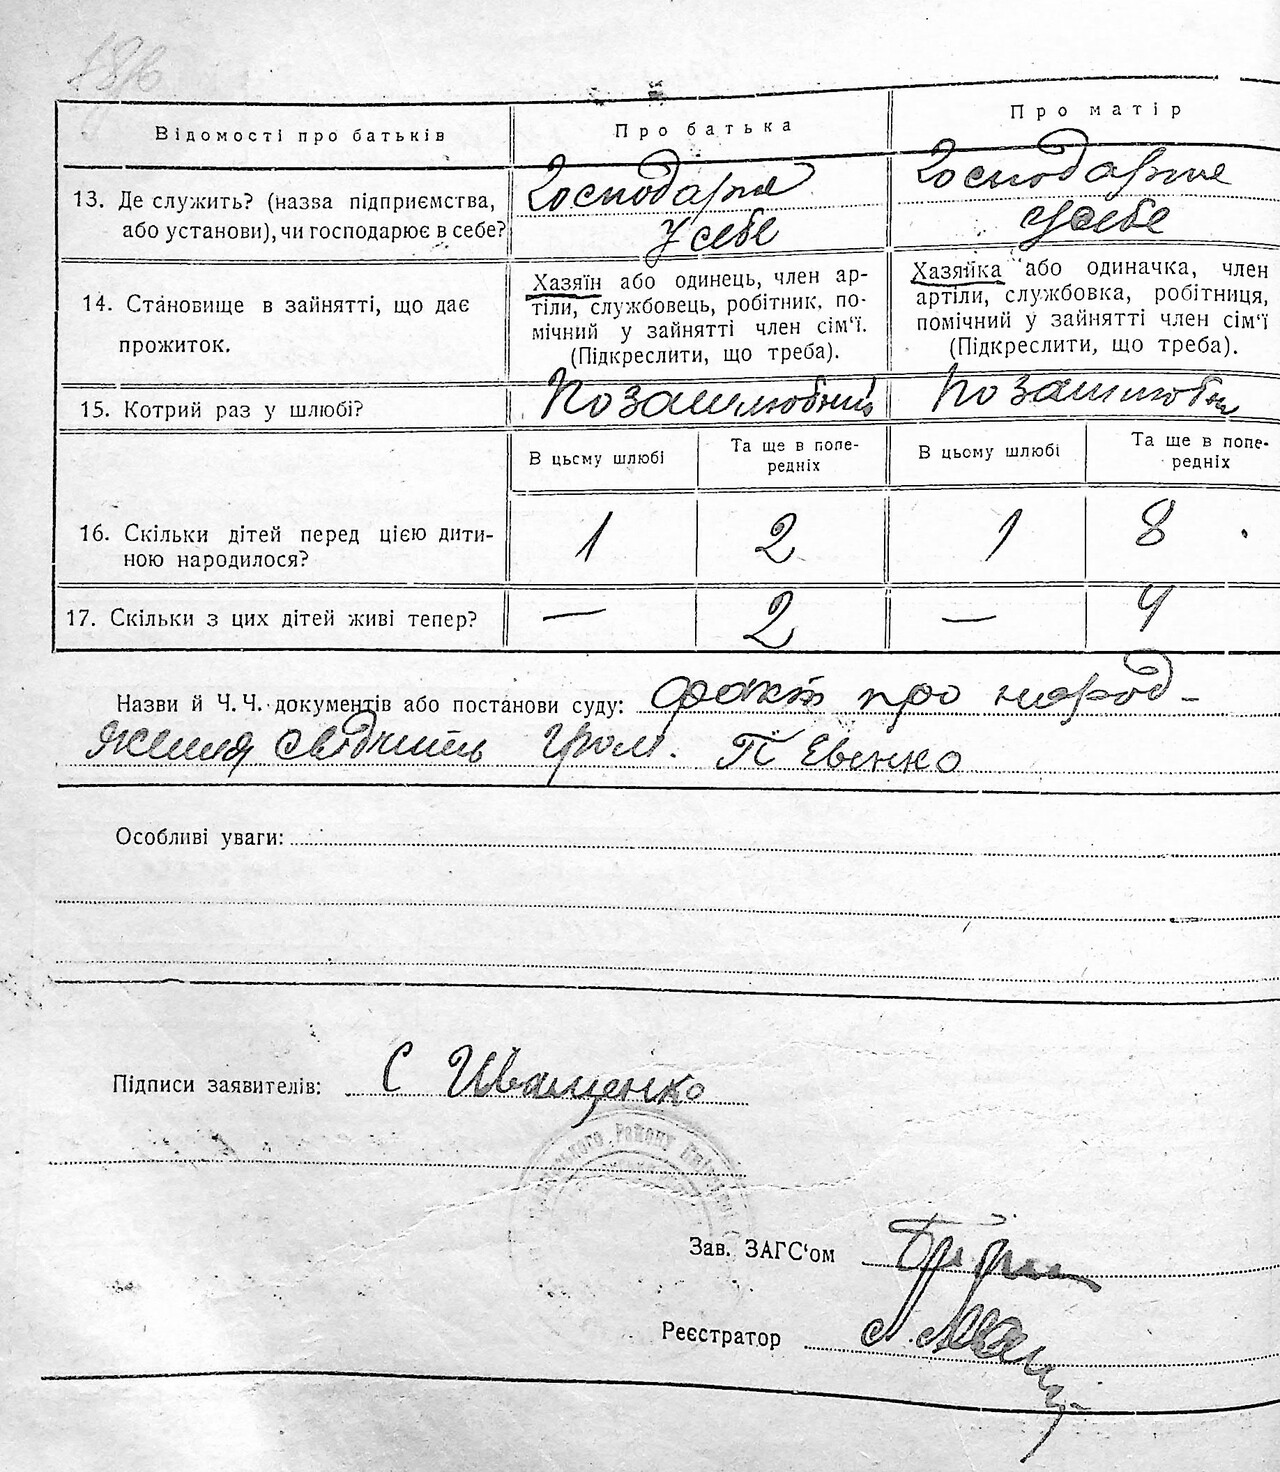 Відомості про батьків
Про батька
Про матір
13. Де служить? (назва підприємства,
або установи), чи господарює в себе?
Господарює
у себе
Господарює
у себе
14. Становище в зайнятті, що дає
прожиток.
Хазяїн або одинець, член ар-
тіли, службовець, робітник, по-
мічний у зайнятті член сім'ї.
(Підкреслити, що треба).
Хазяйка або одиначка, член
артіли, службовка, робітниця,
помічний у зайнятті член сім'ї
(Підкреслити, що треба).
15. Котрий раз у шлюбі?
Позашлюбний
Позашлюбн
В цьому шлюбі
Та ще в попе-
редніх
В цьому шлюбі
Та ще в попе-
редніх
16. Скільки дітей перед цією дити-
ною народилося?
1
2
1
8
17. Скільки з цих дітей живі тепер?
—
2
—
4
Назви й Ч. Ч. документів або постанови суду: факт про народ-
ження свідчить гром. П Евенко
Особливі уваги:
Підписи заявителів: С Иващенко
Району
Зав. ЗАГС'ом
Реєстратор